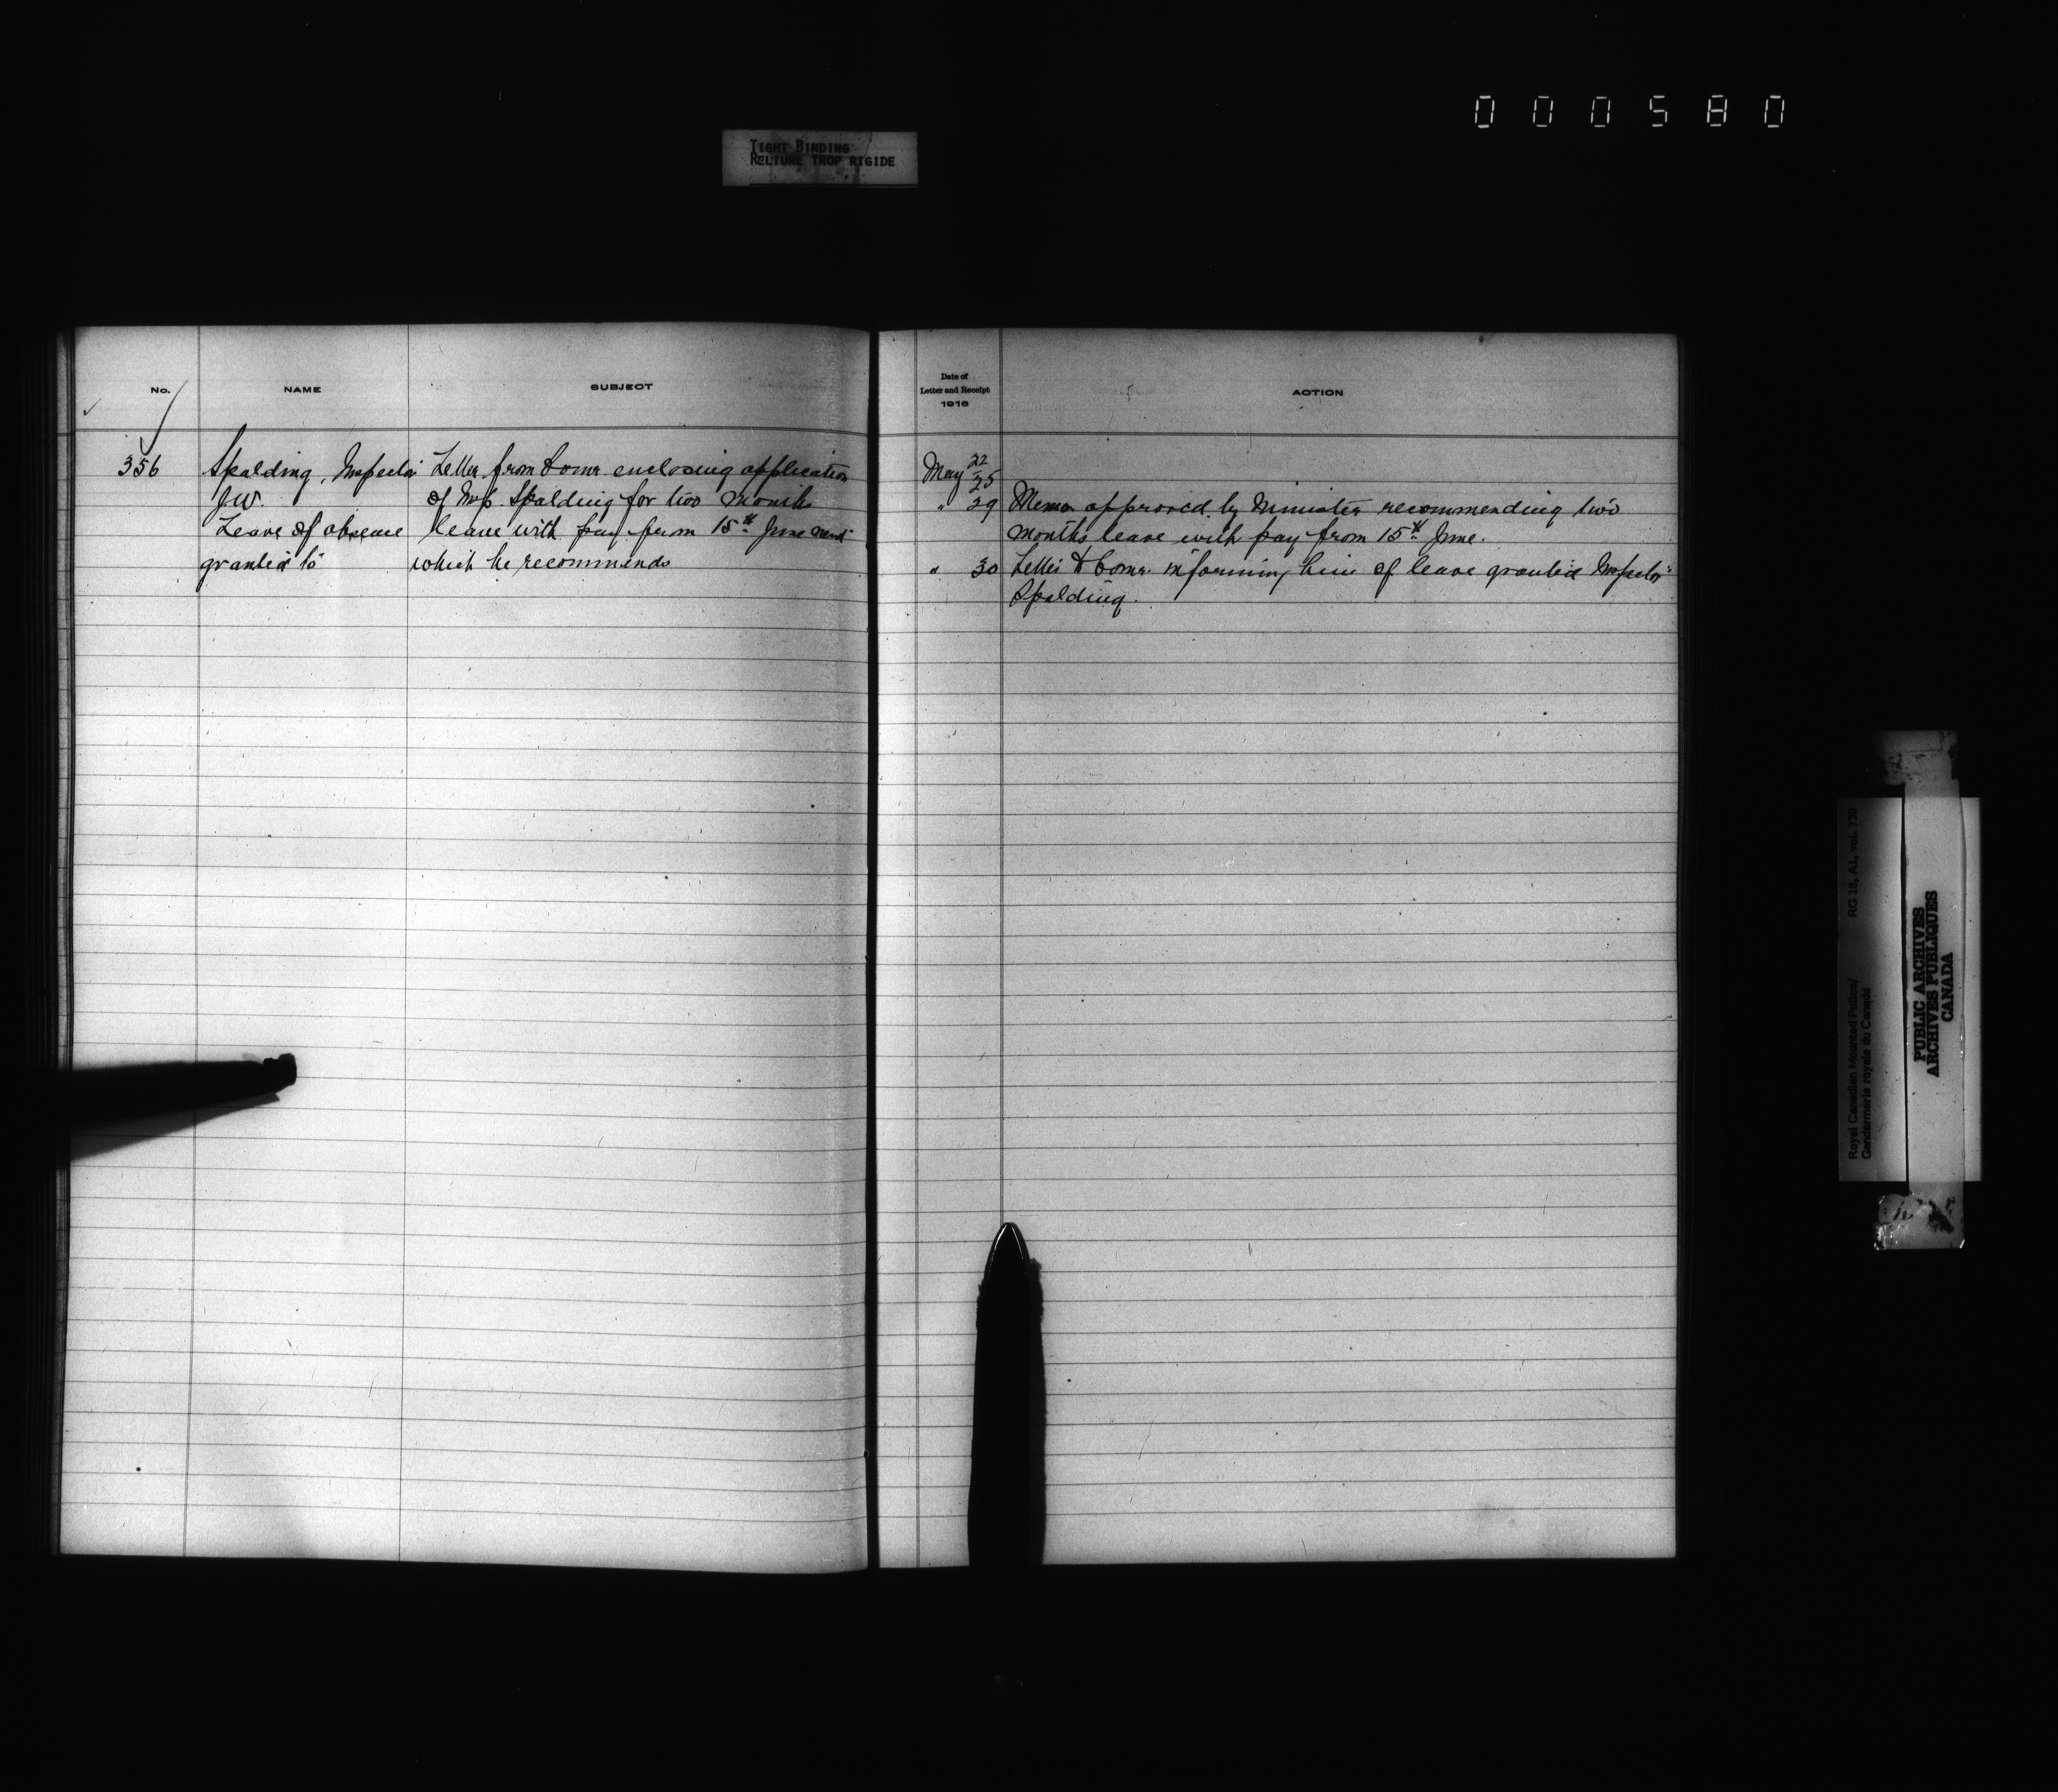 000580
TIGHT BINDING
RELIURE TROP RIGIDE
No.
NAME
SUBJECT
356
Spalding, Inspector
J.W.
Leave of absence
granted to
Letter from Comr. enclosing application
of Insp. Spalding for two months
leave with pay from 15th June next
which he recommends
Date of
Letter and Receipt
1916
ACTION
May 22
25
" 29 Memo approved by Minister recommending two
months leave with pay from 15th June.
" 30 Letter to Comr. informing him of leave granted Inspector
Spalding.
RG 18, A1, vol. 730
Royal Canadian Mounted Police/
Gendarmerie royale du Canada
PUBLIC ARCHIVES
ARCHIVES PUBLIQUES
CANADA